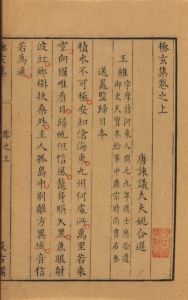 極玄集卷之上
唐諫議大夫姚合選
王維
字摩詰河東人開元九年進士歷拾遺
御史天寶末給事中肅宗時尚書右丞
送晁監歸日本
積水不可極安知滄海東九州何處所萬里若乘
空向國唯看日歸帆但信風鰲身映天黑魚眼射
波紅鄉樹扶桑外主人孤島中別離方異域音信
若為通
極玄集
卷之上
汲古閣